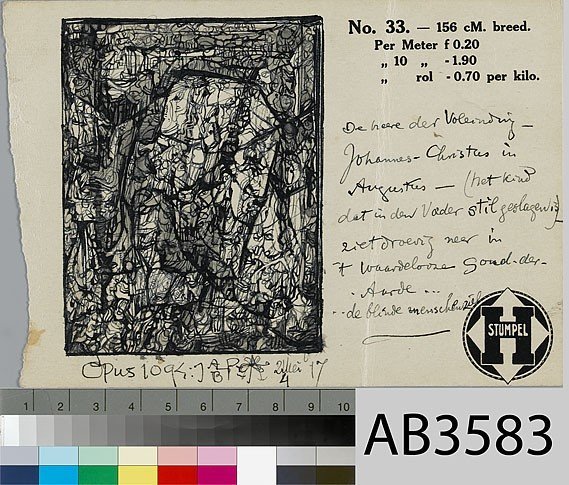 No. 33. — 156 cM. breed.
Per Meter f 0.20
„ 10 „ - 1.90
„ rol - 0.70 per kilo.
De heere der Voleinding —
Johannes-Christus in
Augustus — (het kind
dat in den Vader stil geslagen is)
ziet droevig neer in
't waardelooze Goud-der-
- Aarde ...
... de blinde menschenziel
STUMPEL
H
Opus 1094: 17
1 2 3 4 5 6 7 8 9 10
AB3583